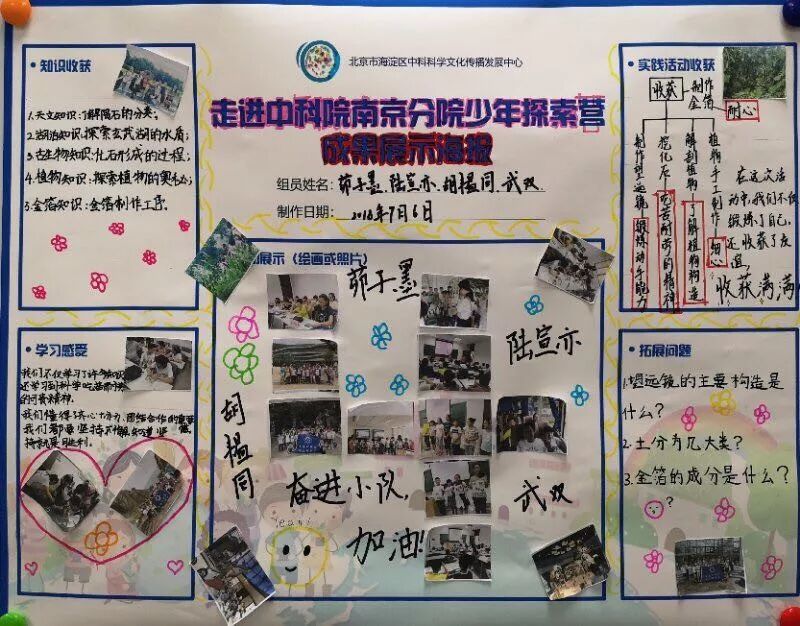 北京市海淀区中科科学文化传播发展中心
走进中科院南京分院少年探索营
成果展示海报
组员姓名：茆子墨、陆宣亦、胡楹同、武双
制作日期：2018年7月6日
• 知识收获
1.天文知识：了解陨石的分类；
2.湖泊知识：探索玄武湖的水质；
3.古生物知识：化石形成的过程；
4.植物知识：探索植物的奥秘；
5.金箔知识：金箔制作工序。
展示（绘画或照片）
茆子墨
陆宣亦
胡楹同
武双
奋进小队
加油！
• 实践活动收获
收获
制作金箔
耐心
制作望远镜
锻炼动手能力
挖化石
吃苦耐劳的精神
解剖植物
了解植物构造
植物手工制作
细心
在这次活
动中，我们不仅
锻炼了自己，
还收获了友
谊，
收获满满
• 学习感受
我们不仅学习了许多知识
还学习到科学
的可贵精神。
我们懂得了齐心协力、团结合作的重要
我们都要坚持不懈，知道坚
持就是胜利。
• 拓展问题
1.望远镜的主要构造是
什么？
2.土分为几大类？
3.金箔的成分是什么？
？